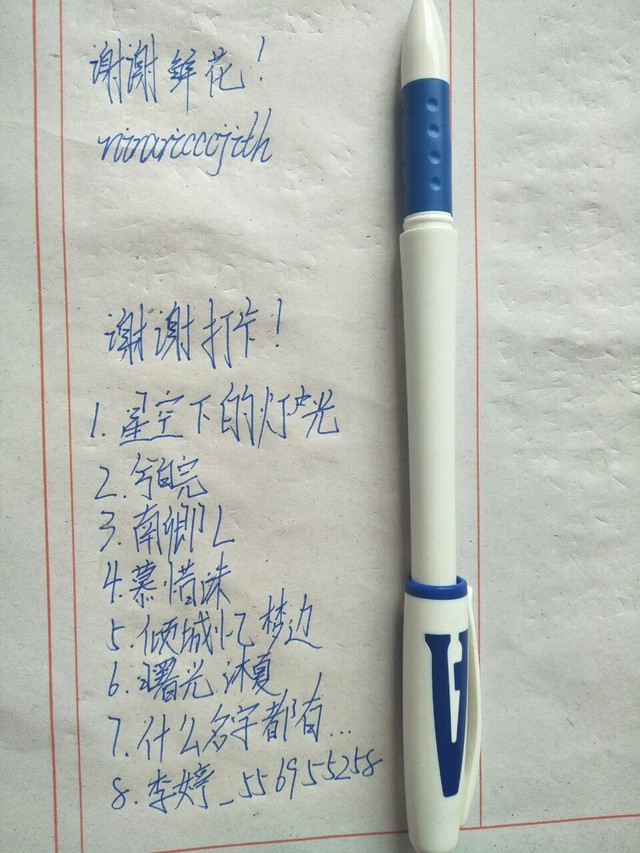 谢谢鲜花!
谢谢打卡!
1.星空下的灯光
2.
3.南卿L
4.慕惜
5.倾城忆梦边
6.曙光沐夏
7.什么名字都有...
8.李婷_556955258